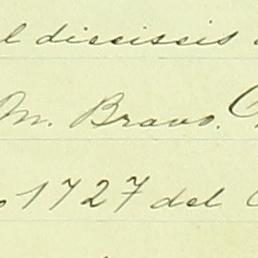 l dieciseis
M. Bravo.
1727 del